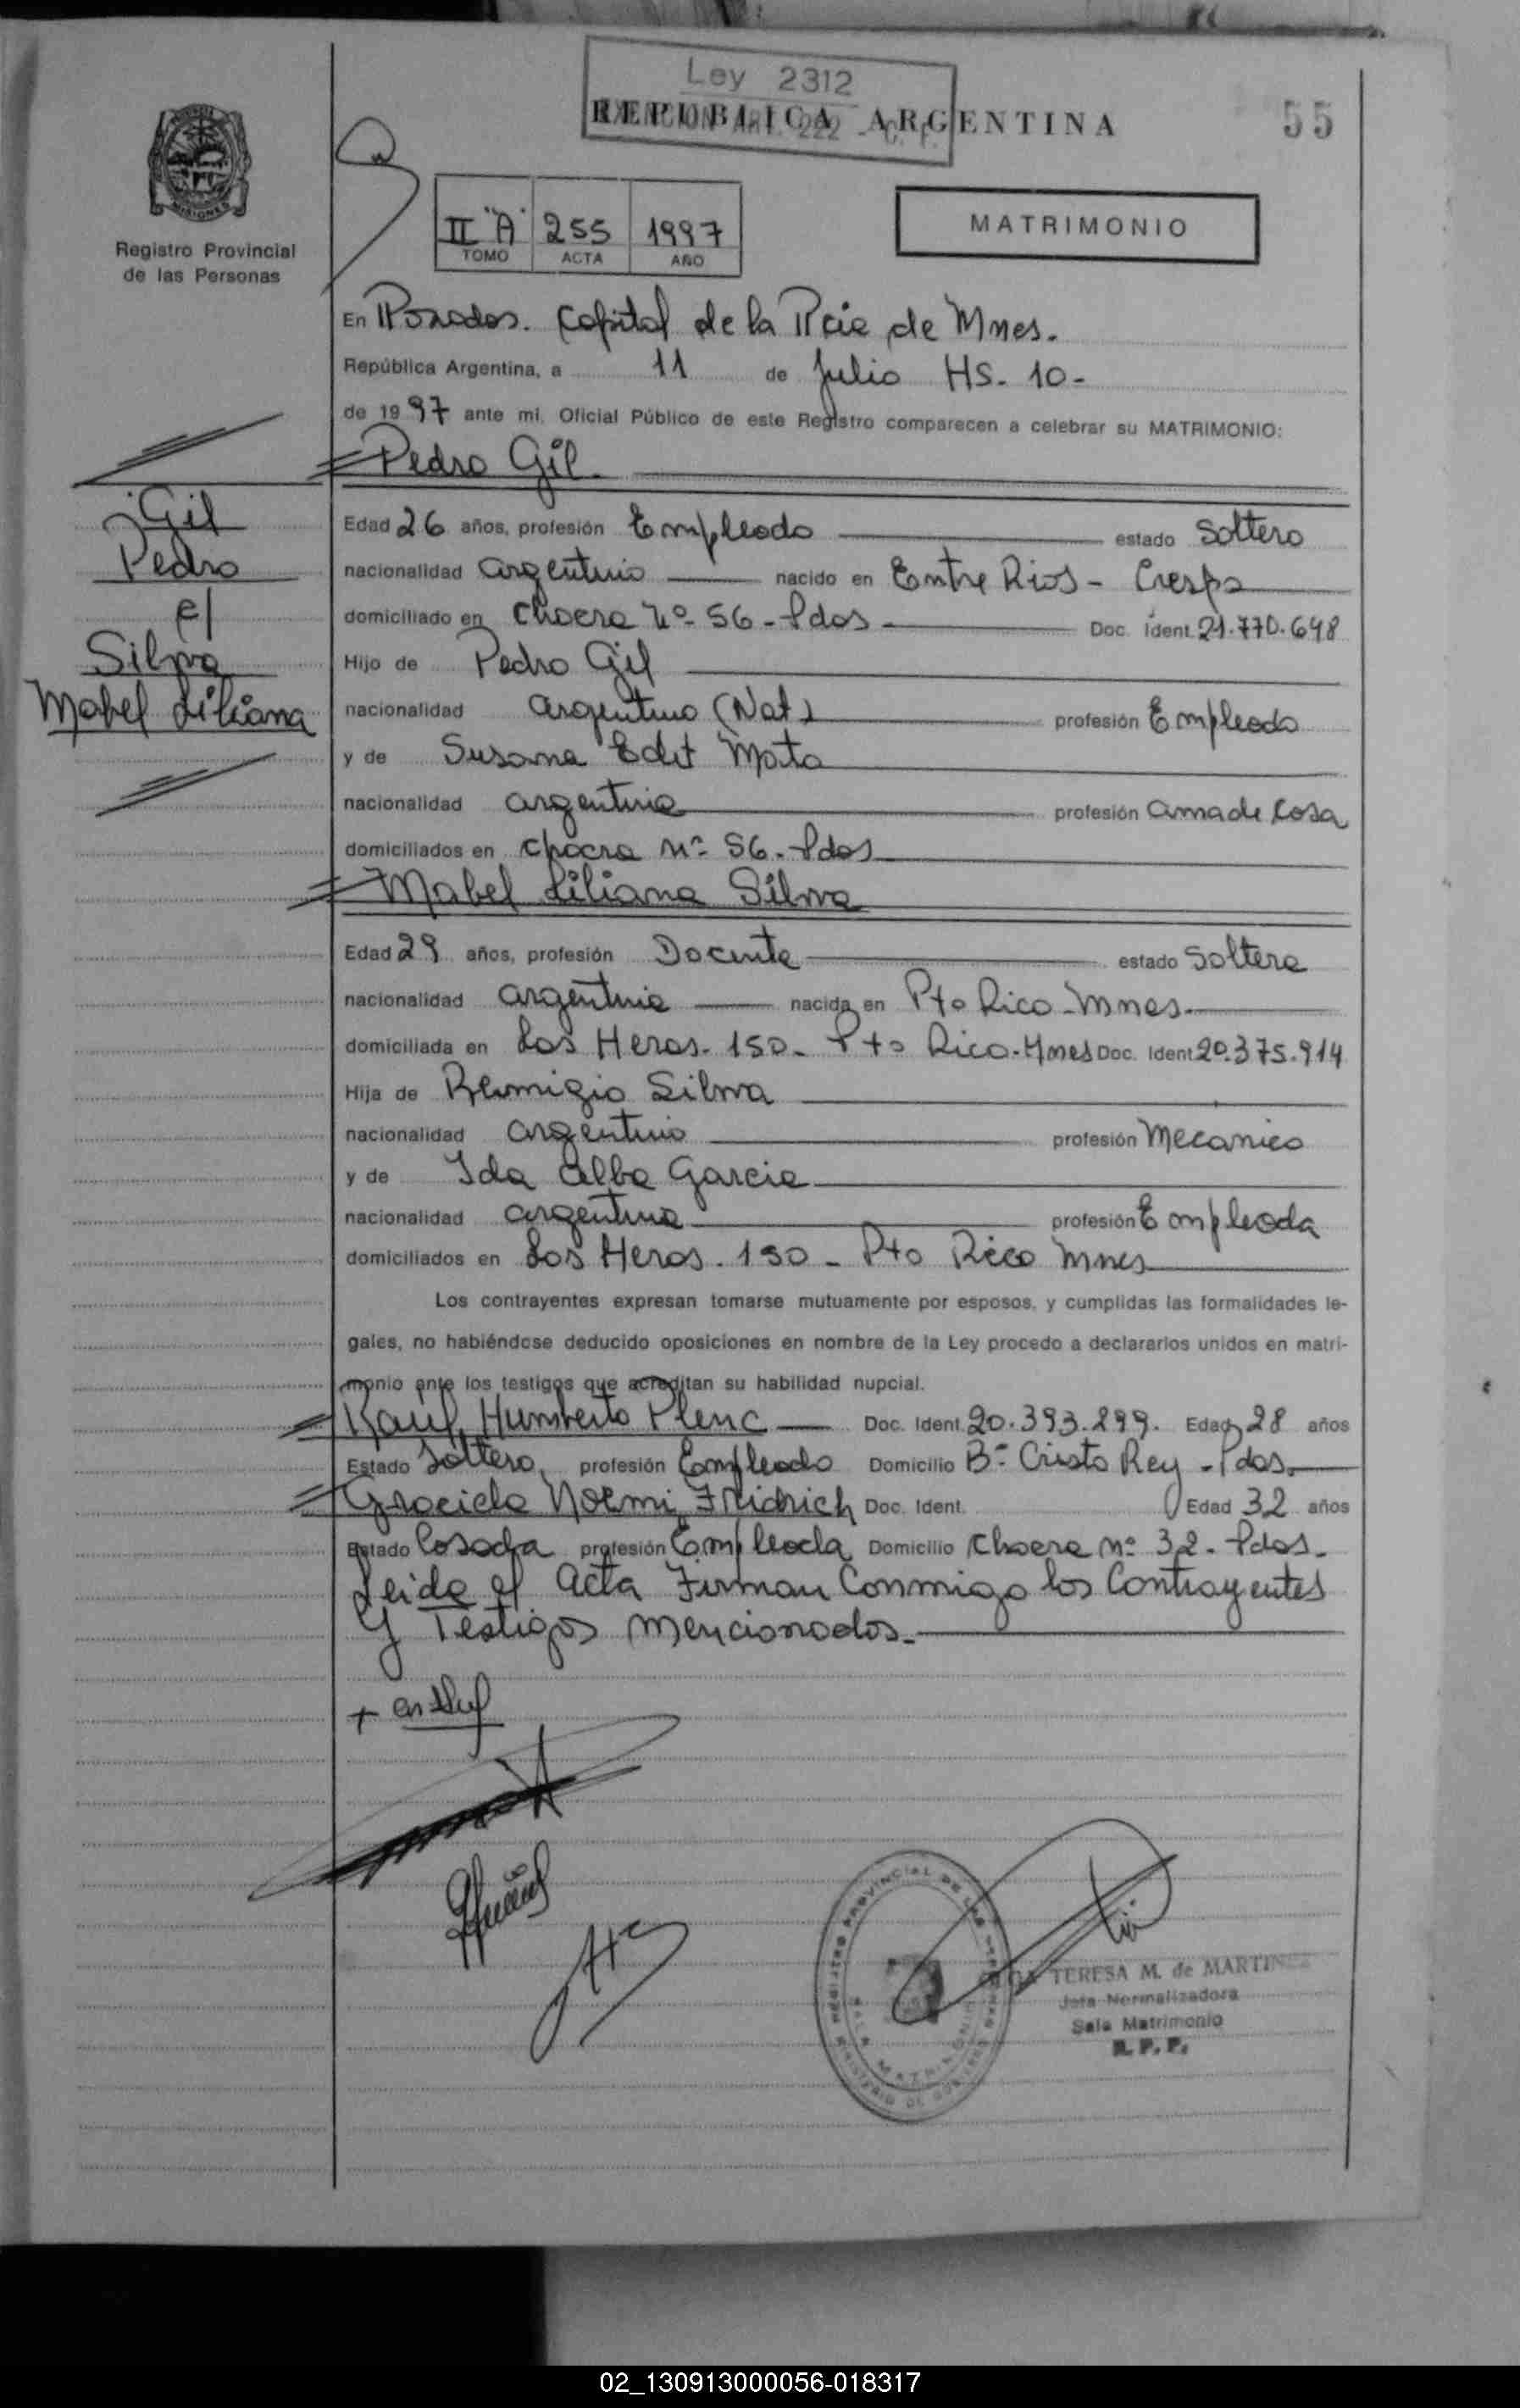 Ley 2312
REPUBLICA ARGENTINA
55
MISIONES
Registro Provincial
de las Personas
II "A" 255 1997
TOMO ACTA AÑO
MATRIMONIO
En Posadas. Capital de la Pcia de Mnes.
República Argentina, a 11 de Julio HS. 10-
de 1997 ante mi, Oficial Público de este Registro comparecen a celebrar su MATRIMONIO:
Pedro Gil
Gil
Pedro
c/
Silva
Mabel Liliana
Edad 26 años, profesión Empleado estado Soltero
nacionalidad argentino nacido en Entre Rios - Crespo
domiciliado en Chacra Nº 56 - Pdas Doc. Ident. 21.770.648
Hijo de Pedro Gil
nacionalidad argentino (Nat) profesión Empleado
y de Susana Edit Mota
nacionalidad argentina profesión ama de casa
domiciliados en Chacra Nº 56 - Pdas
Mabel Liliana Silva
Edad 29 años, profesión Docente estado Soltera
nacionalidad argentina nacida en Pto Rico - Mnes.
domiciliada en Las Heras. 150 - Pto Rico - Mnes Doc. Ident. 20.375.914
Hija de Remigio Silva
nacionalidad argentino profesión Mecanico
y de Ida Alba Garcia
nacionalidad argentina profesión Empleada
domiciliados en Las Heras. 150 - Pto Rico Mnes
Los contrayentes expresan tomarse mutuamente por esposos, y cumplidas las formalidades le-
gales, no habiéndose deducido oposiciones en nombre de la Ley procedo a declararlos unidos en matri-
monio ante los testigos que acreditan su habilidad nupcial.
Raul Humberto Plenc Doc. Ident. 20.393.299. Edad 28 años
Estado Soltero, profesión Empleado Domicilio Bº Cristo Rey - Pdas.
Graciela Noemi Fridrich Doc. Ident. Edad 32 años
Estado Casada profesión Empleada Domicilio Chacra nº 32 - Pdas.
Leida el Acta Firman Conmigo los Contrayentes
y Testigos mencionados.
TERESA M. de MARTINEZ
Jefa Normalizadora
Sala Matrimonio
R. P. P.
02_130913000056-018317